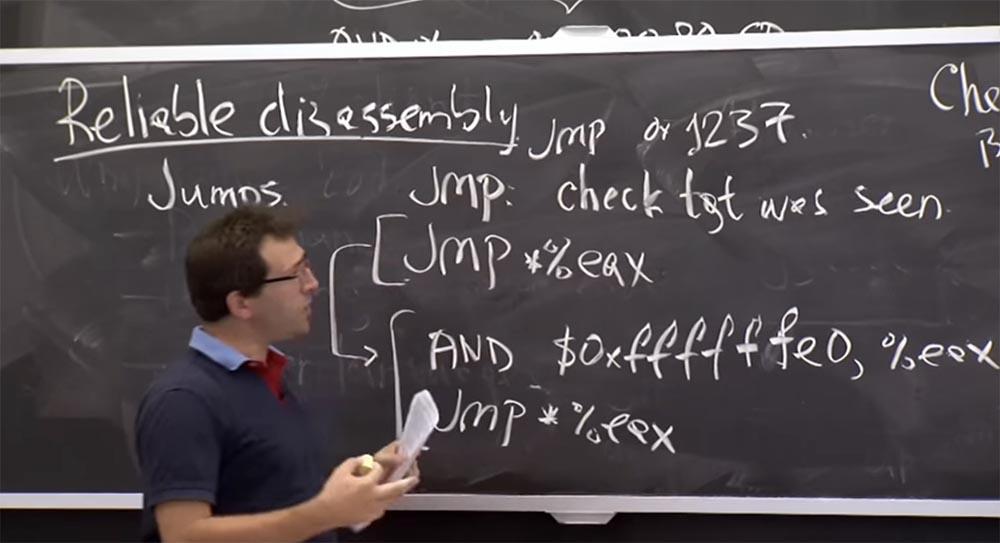 Reliable disassembly
JMP or 1237.
Che
Jumps.
JMP: check tgt was seen.
JMP *%eax
AND $0xffffffe0, %eax
JMP *%eax